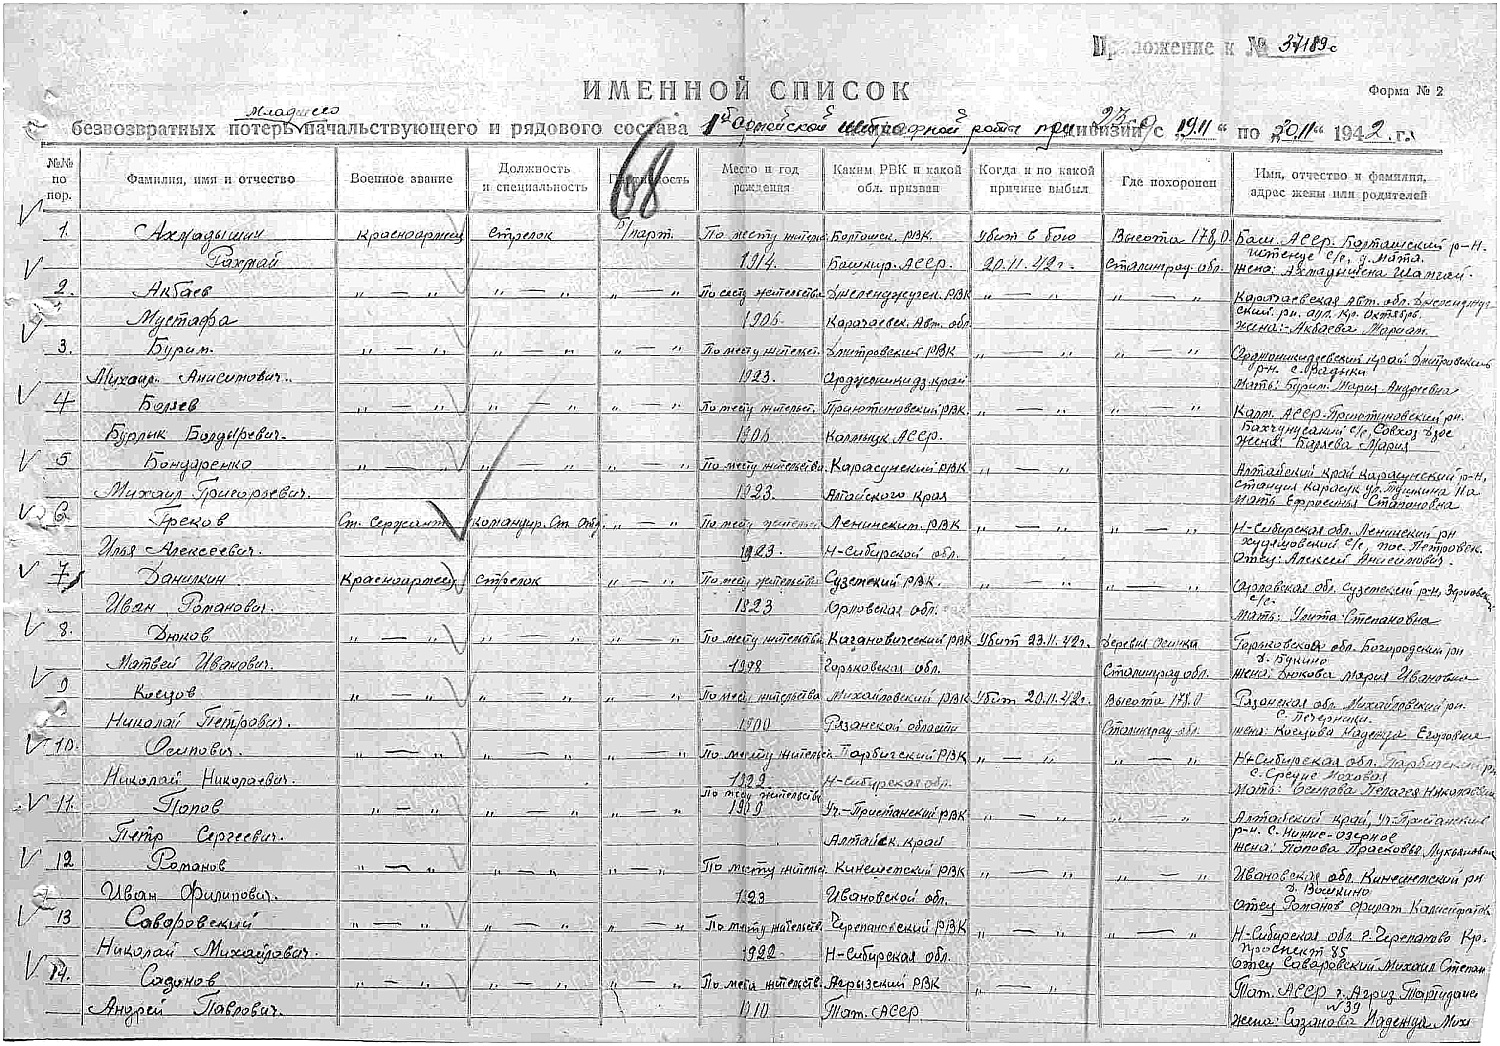 Приложение к № 37189с
ИМЕННОЙ СПИСОК
Форма № 2
младшего
безвозвратных потерь начальствующего и рядового состава 1й Армейской штрафной роты при 23 сд дивизии с „19.11“ по „30.11“ 1942 г.
68
№№ по пор.
Фамилия, имя и отчество
Военное звание
Должность и специальность
Партийность
Место и год рождения
Каким РВК и какой обл. призван
Когда и по какой причине выбыл
Где похоронен
Имя, отчество и фамилия, адрес жены или родителей
1. Ахмадышин красноармеец стрелок б/парт. По месту жительс. РВК. Убит в бою Высота 178,0 Баш. АССР. р-н.
Рахмай 1914. Башкир. АССР. 20.11.42г. Сталинград. обл. с/с, д. Мата.
жена: Ахмадышена
2. Акбаев „ — „ „ — „ „ — „ По месту жительства РВК „ — „ „ — „ Карачаевская Авт. обл.
Мустафа 1906. Карачаевск. Авт. обл. рн. аул. Кр. Октябрь.
жена:- Акбаева Мариам.
3. Бурим. „ — „ „ — „ „ — „ По месту жительст. Дмитровский РВК „ — „ „ — „ край Дмитровский
Михаил Анисимович. 1923. край р-н. с.
Мать: Бурим Мария Андреевна
4 Боляев „ — „ „ — „ „ — „ По месту жительст. Приютиновский РВК. „ — „ „ — „ Калм. АССР. Приютиновский рн.
Бурлык Болдыревич. 1906 Калмыцк АССР. с/с, Совхоз
жена: Мария
5 Бондаренко „ — „ „ — „ „ — „ По месту жительства. Карасукский РВК „ — „ „ — „ Алтайский край Карасукский р-н,
Михаил Григорьевич. 1923. Алтайского края станция Карасук ул. Пушкина
Мать Ефросинья Степановна
6 Греков Ст. Сержант командир. Ст. Отд. „ — „ По месту жительс. Ленинским. РВК „ — „ „ — „ Н-Сибирская обл. Ленинский рн
Илья Алексеевич. 1923. Н-Сибирской обл. с/с, пос. Петровск.
Отец: Алексей Анисимович.
7 Данилкин Красноармеец стрелок „ — „ По месту жительства Сузетский РВК. „ — „ „ — „ Орловская обл. Сузетский р-н,
Иван Романович. 1823 Орловская обл. с/с-
Мать: Улита Степановна
8. Дюков „ — „ „ — „ „ — „ По месту жительства Кагановический РВК Убит 23.11.42г. деревня Осинка Горьковская обл. Богородский рн
Матвей Иванович. 1998 Горьковская обл. Сталинград обл. д. Букино
жена: Дюкова Мария Ивановна
9 Косцов „ — „ „ — „ „ — „ По мест. жительства Михайловский РВК Убит 20.11.42г. Высота 178.0 Рязанская обл. Михайловский рн.
Николай Петрович. 1900 Рязанской области Сталинград. обл. с. Печерники.
жена: Косцова Надежда Егоровна
10. Осипович. „ — „ „ — „ „ — „ По месту жительс. Парбигский РВК „ — „ „ — „ Н-Сибирская обл. Парбигский рн
Николай Николаевич. 1922. Н-Сибирская обл. с. Моховая
Мать: Осипова Пелагея Николаевна
11. Попов „ — „ „ — „ „ — „ По месту жительства Уч-Пристанский РВК „ — „ „ — „ Алтайский край, Уч-Пристанский
Петр Сергеевич. 1909 Алтайск. край р-н. с. Нижне-Озерное
жена: Попова Прасковья Лукьяновна
12 Романов „ — „ „ — „ „ — „ По месту жительс. Кинешемский РВК „ — „ „ — „ Ивановская обл. Кинешемский рн
Иван Филипович. 1923 Ивановской обл. д. Вошкино
Отец Романов Филат
13 Саваровский „ — „ „ — „ „ — „ По месту жительств. Черепановский РВК „ — „ „ — „ Н-Сибирская обл. г. Черепаново Кр.
Николай Михайлович. 1922 Н-Сибирская обл. проспект 85
Отец Саваровский Михаил Степан
14. Сазонов „ — „ „ — „ „ — „ По места жительств. Агрызский РВК „ — „ „ — „ Тат. АССР г. Агриз
Андрей Павлович. 1910 Тат. АССР №39
жена: Сазанова Надежда Мих